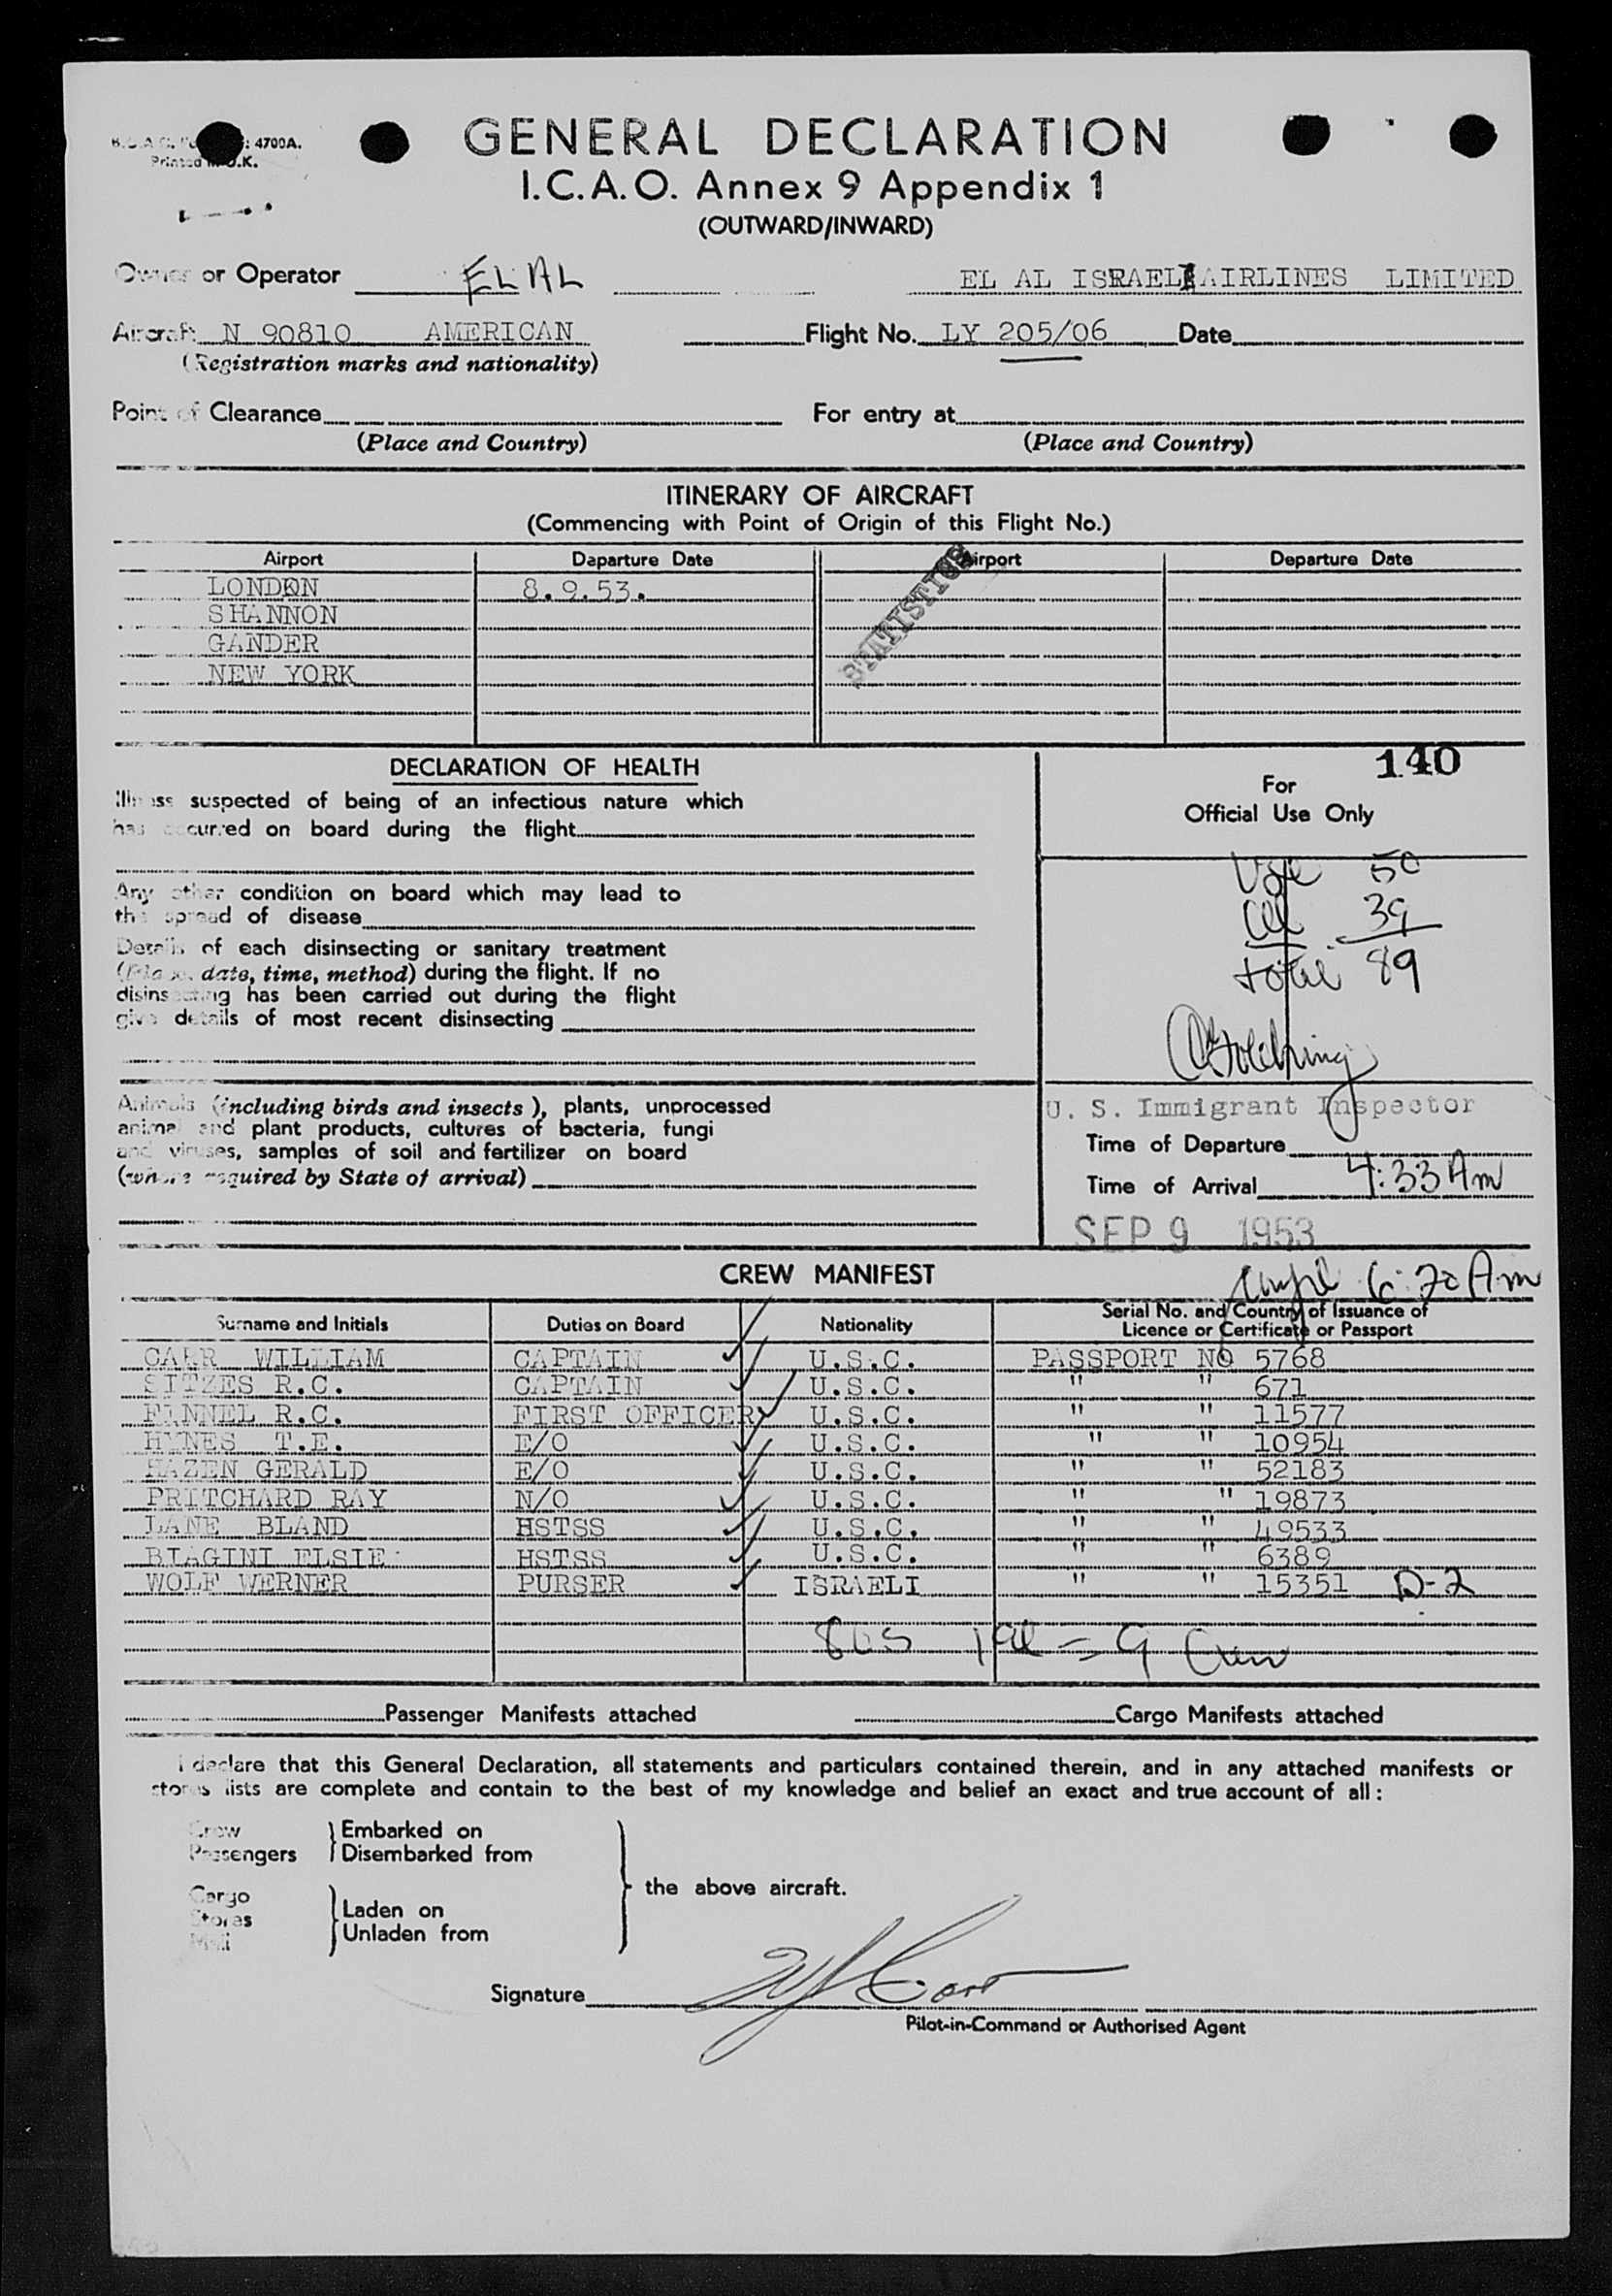 GENERAL DECLARATION
4700A.
Printed in U.K.
I.C.A.O. Annex 9 Appendix 1
(OUTWARD/INWARD)
Owner or Operator EL AL EL AL ISRAEL AIRLINES LIMITED
Aircraft N 90810 AMERICAN Flight No. LY 205/06 Date
(Registration marks and nationality)
Point of Clearance For entry at
(Place and Country) (Place and Country)
ITINERARY OF AIRCRAFT
(Commencing with Point of Origin of this Flight No.)
Airport Departure Date Airport Departure Date
STATISTICS
LONDON 8.9.53.
SHANNON
GANDER
NEW YORK
140
DECLARATION OF HEALTH
For
Official Use Only
Illness suspected of being of an infectious nature which
has occurred on board during the flight
50
39
total 89
Any other condition on board which may lead to
the spread of disease
Details of each disinsecting or sanitary treatment
(Place, date, time, method) during the flight. If no
disinsecting has been carried out during the flight
give details of most recent disinsecting
Animals (including birds and insects), plants, unprocessed
animal and plant products, cultures of bacteria, fungi
and viruses, samples of soil and fertilizer on board
(where required by State of arrival)
U. S. Immigrant Inspector
Time of Departure
Time of Arrival 4:33 Am
SEP 9 1953
CREW MANIFEST
6:20 Am
Surname and Initials Duties on Board Nationality Serial No. and Country of Issuance of
Licence or Certificate or Passport
CARR WILLIAM CAPTAIN U.S.C. PASSPORT NO 5768
SITZES R.C. CAPTAIN U.S.C. " " 671
FINNEL R.C. FIRST OFFICER U.S.C. " " 11577
HYNES T.E. E/O U.S.C. " " 10954
HAZEN GERALD E/O U.S.C. " " 52183
PRITCHARD RAY N/O U.S.C. " " 19873
LANE BLAND HSTSS U.S.C. " " 49533
BIAGINI ELSIE HSTSS U.S.C. " " 6389
WOLF WERNER PURSER ISRAELI " " 15351 D-2
= 9 Crew
Passenger Manifests attached Cargo Manifests attached
I declare that this General Declaration, all statements and particulars contained therein, and in any attached manifests or
stores lists are complete and contain to the best of my knowledge and belief an exact and true account of all:
Crew Embarked on
Passengers Disembarked from
the above aircraft.
Cargo
Stores Laden on
Mail Unladen from
Signature
Pilot-in-Command or Authorised Agent